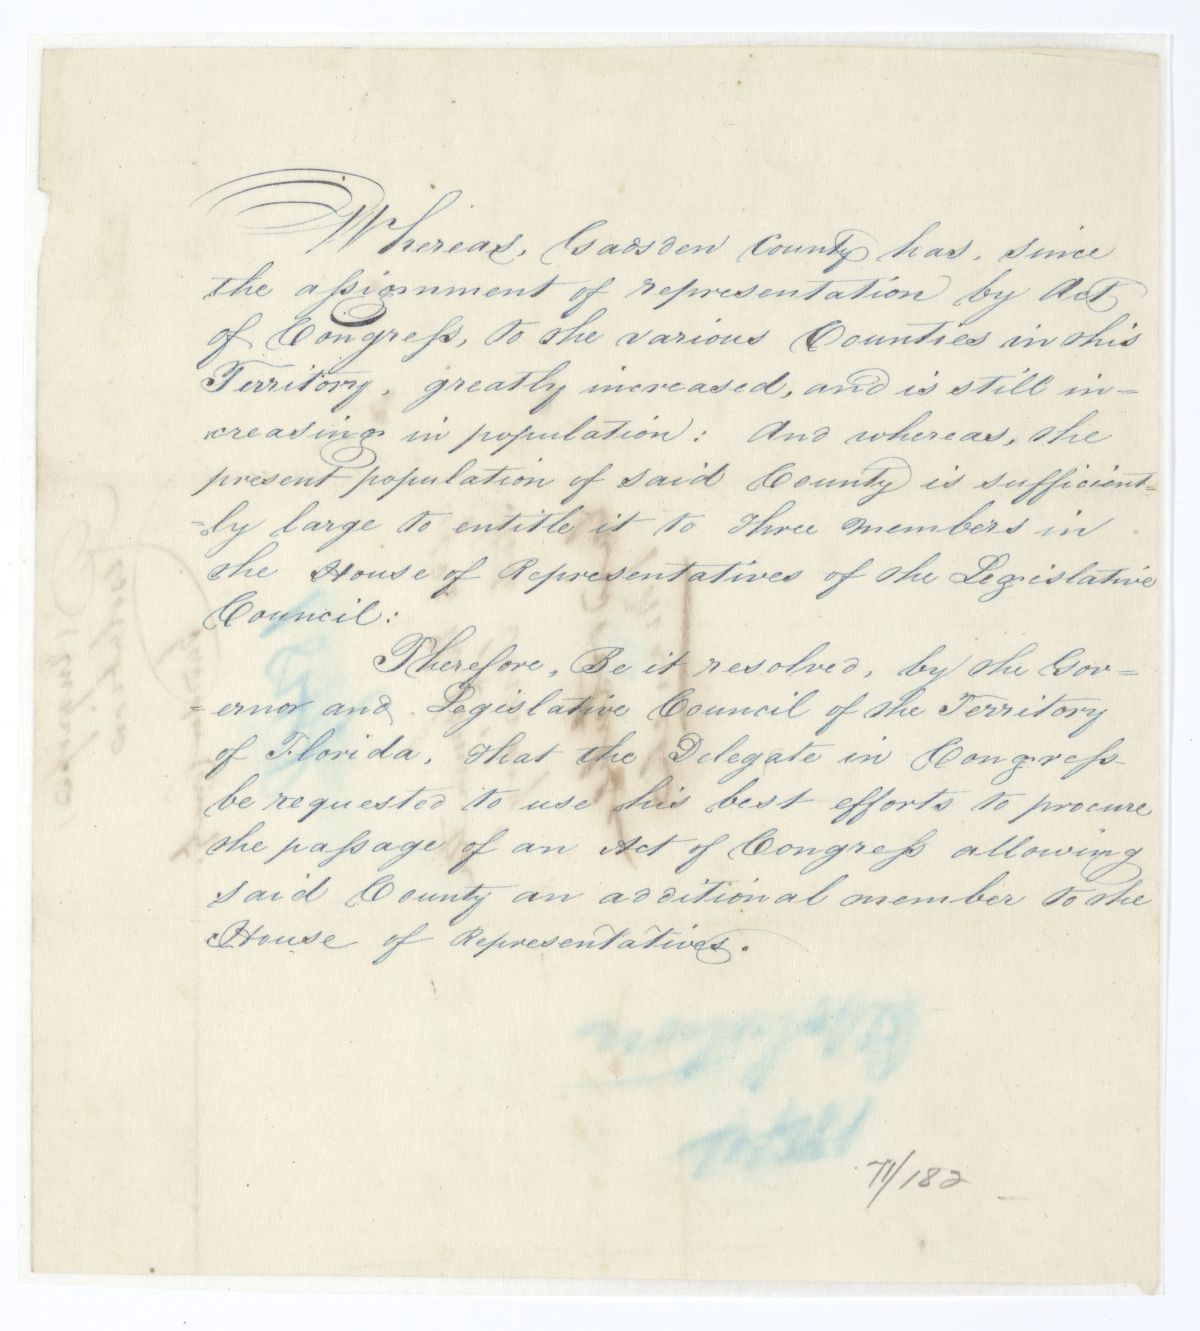 Whereas, Gadsden County has, since
the assignment of representation by Act
of Congress, to the various Counties in this
Territory, greatly increased, and is still in=
creasing in population: And whereas, the
present population of said County is sufficient=
=ly large to entitle it to three members in
the House of Representatives of the Legislative
Council:
Therefore, Be it resolved, by the Gov=
=ernor and Legislative Council of the Territory
of Florida, that the Delegate in Congress
be requested to use his best efforts to procure
the passage of an Act of Congress allowing
said County an additional member to the
House of Representatives.
71/182